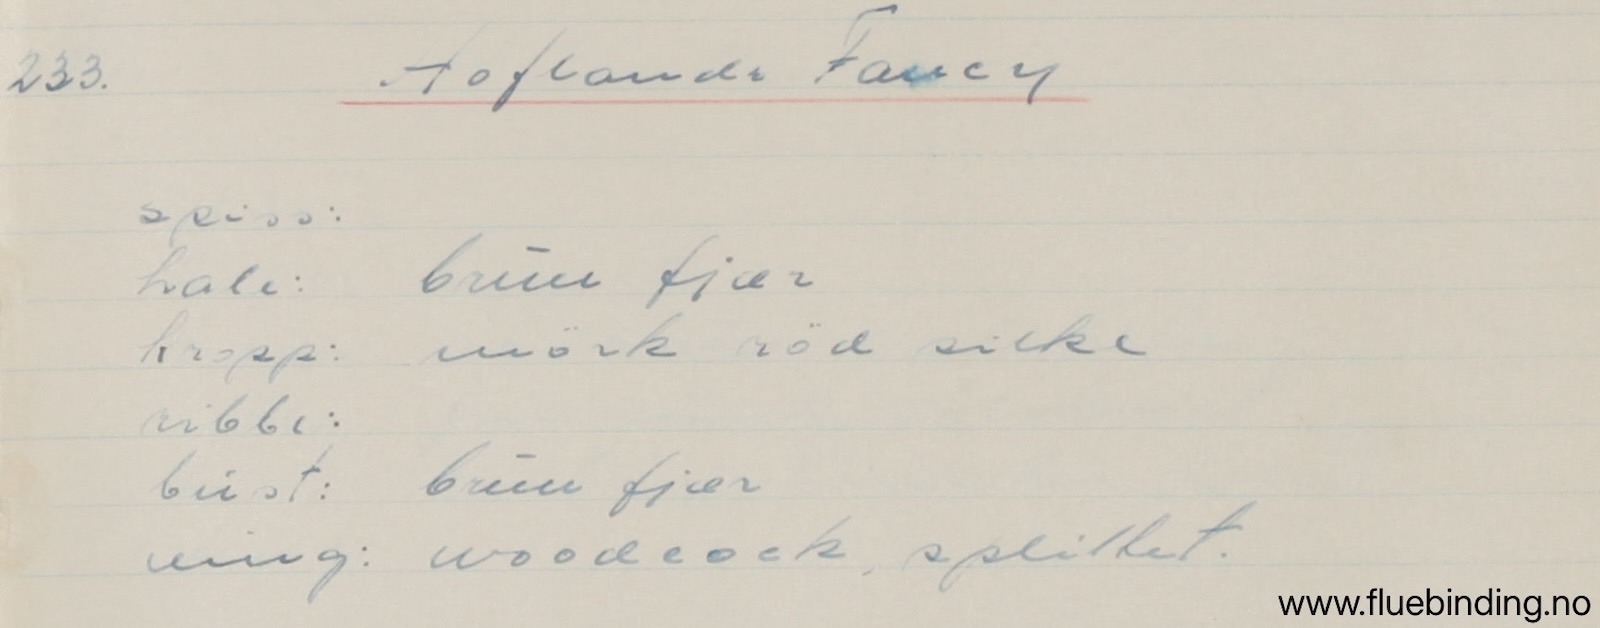 233. Hoflands Fancy
spiss:
hale: brūn fjær
kropp: mörk röd silke
ribbe:
büst: brūn fjær
ving: woodcock, splittet.
www.fluebinding.no